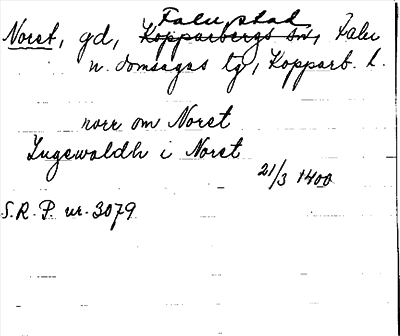 Falu stad
Norst, gd, Kopparbergs sn, Falu
n. domsagas tg, Kopparb. l.
norr om Norst
Ingewaldh i Norst
21/3 1400
S.R.P. nr. 3079